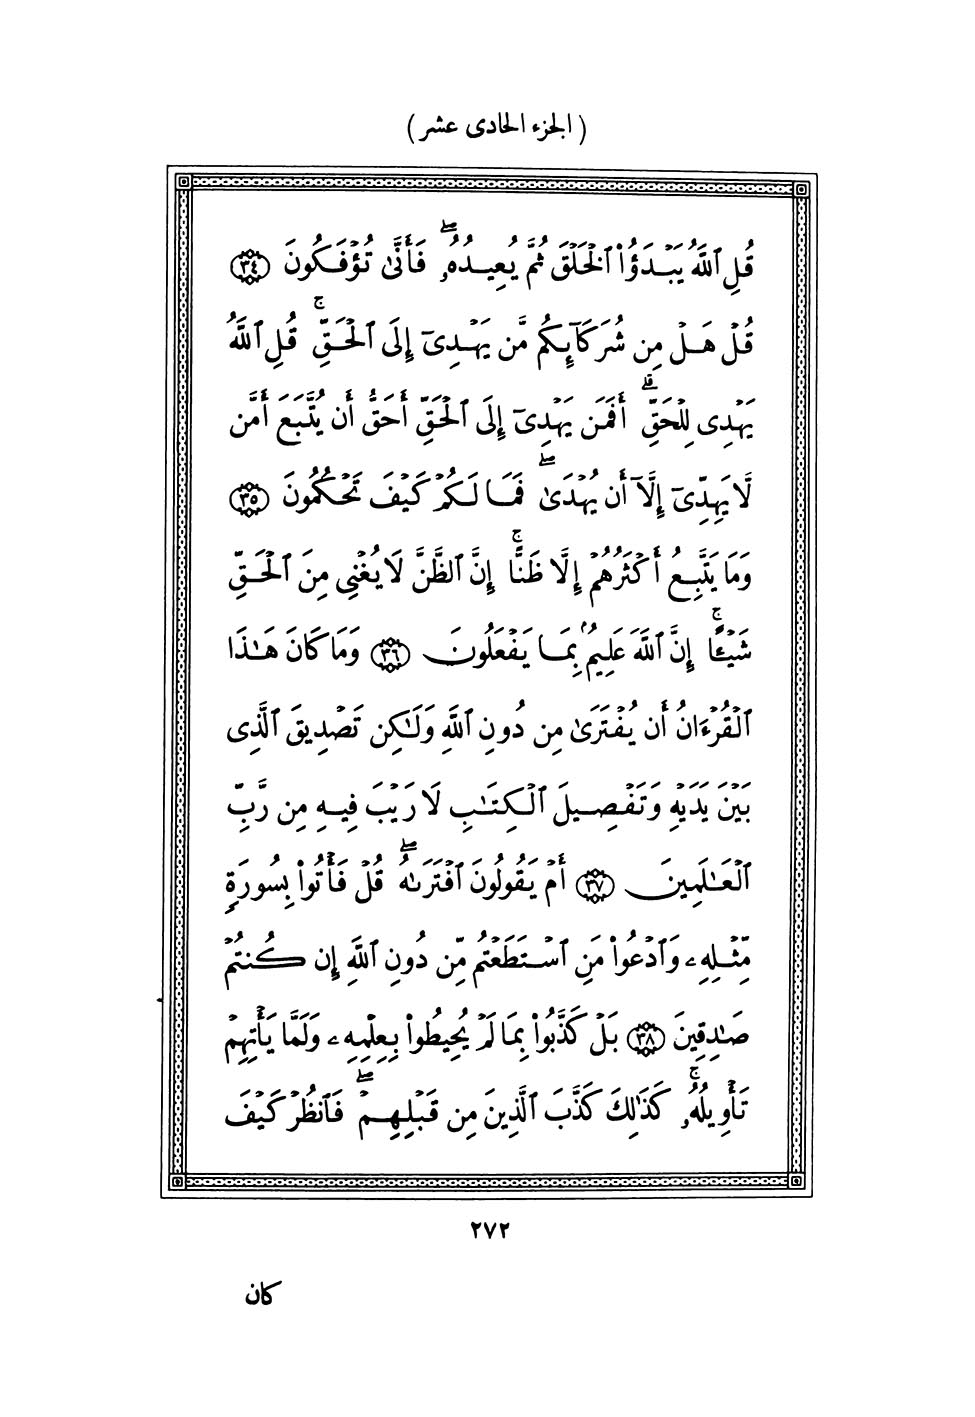 ( الجزء الحادى عشر )
قُلِ ٱللَّهُ يَبْدَؤُا۟ ٱلْخَلْقَ ثُمَّ يُعِيدُهُۥۖ فَأَنَّىٰ تُؤْفَكُونَ ۝٣٤
قُلْ هَلْ مِن شُرَكَآئِكُم مَّن يَهْدِىٓ إِلَى ٱلْحَقِّۚ قُلِ ٱللَّهُ
يَهْدِى لِلْحَقِّۗ أَفَمَن يَهْدِىٓ إِلَى ٱلْحَقِّ أَحَقُّ أَن يُتَّبَعَ أَمَّن
لَّا يَهِدِّىٓ إِلَّآ أَن يُهْدَىٰۖ فَمَا لَكُمْ كَيْفَ تَحْكُمُونَ ۝٣٥
وَمَا يَتَّبِعُ أَكْثَرُهُمْ إِلَّا ظَنًّاۚ إِنَّ ٱلظَّنَّ لَا يُغْنِى مِنَ ٱلْحَقِّ
شَيْـًٔاۚ إِنَّ ٱللَّهَ عَلِيمٌۢ بِمَا يَفْعَلُونَ ۝٣٦ وَمَا كَانَ هَـٰذَا
ٱلْقُرْءَانُ أَن يُفْتَرَىٰ مِن دُونِ ٱللَّهِ وَلَـٰكِن تَصْدِيقَ ٱلَّذِى
بَيْنَ يَدَيْهِ وَتَفْصِيلَ ٱلْكِتَـٰبِ لَا رَيْبَ فِيهِ مِن رَّبِّ
ٱلْعَـٰلَمِينَ ۝٣٧ أَمْ يَقُولُونَ ٱفْتَرَىٰهُۖ قُلْ فَأْتُوا۟ بِسُورَةٍ
مِّثْلِهِۦ وَٱدْعُوا۟ مَنِ ٱسْتَطَعْتُم مِّن دُونِ ٱللَّهِ إِن كُنتُمْ
صَـٰدِقِينَ ۝٣٨ بَلْ كَذَّبُوا۟ بِمَا لَمْ يُحِيطُوا۟ بِعِلْمِهِۦ وَلَمَّا يَأْتِهِمْ
تَأْوِيلُهُۥۚ كَذَٰلِكَ كَذَّبَ ٱلَّذِينَ مِن قَبْلِهِمْۖ فَٱنظُرْ كَيْفَ
٢٧٢
كان